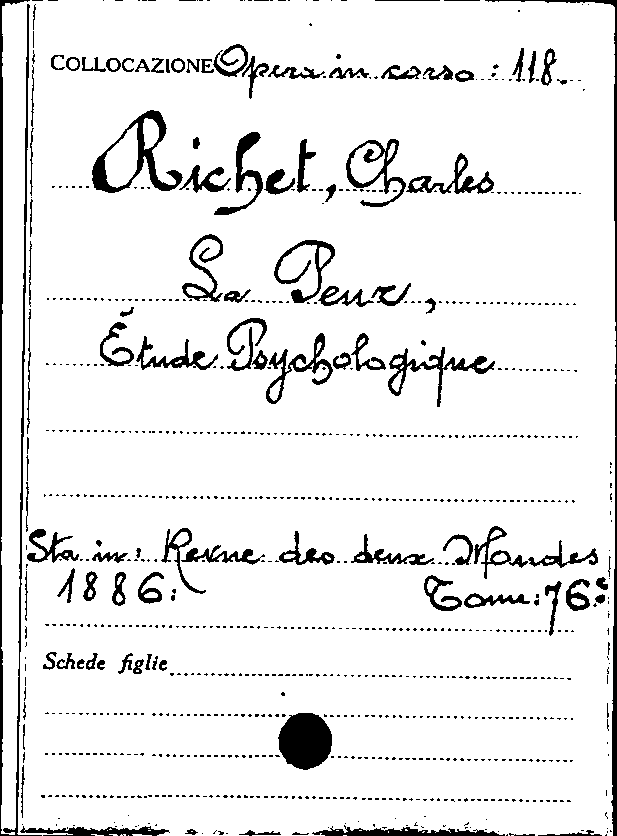 COLLOCAZIONE Opera in corso : 118.
Richet, Charles
La Peur,
Étude Psychologique
Sta in: Revue des deux Mondes
1886: Tome: 76º
Schede figlie